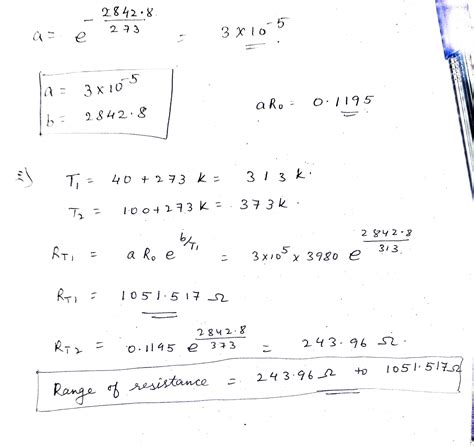 a = e^(-2842.8/273) = 3 x 10^-5
a = 3 x 10^-5
b = 2842.8
aR₀ = 0.1195
T₁ = 40 + 273 K = 313 K.
T₂ = 100 + 273 K = 373 K.
R_T1 = a R₀ e^(b/T₁) = 3x10^5 x 3980 e^(2842.8/313)
R_T1 = 1051.517 Ω
R_T2 = 0.1195 e^(2842.8/373) = 243.96 Ω
Range of resistance = 243.96 Ω to 1051.517 Ω